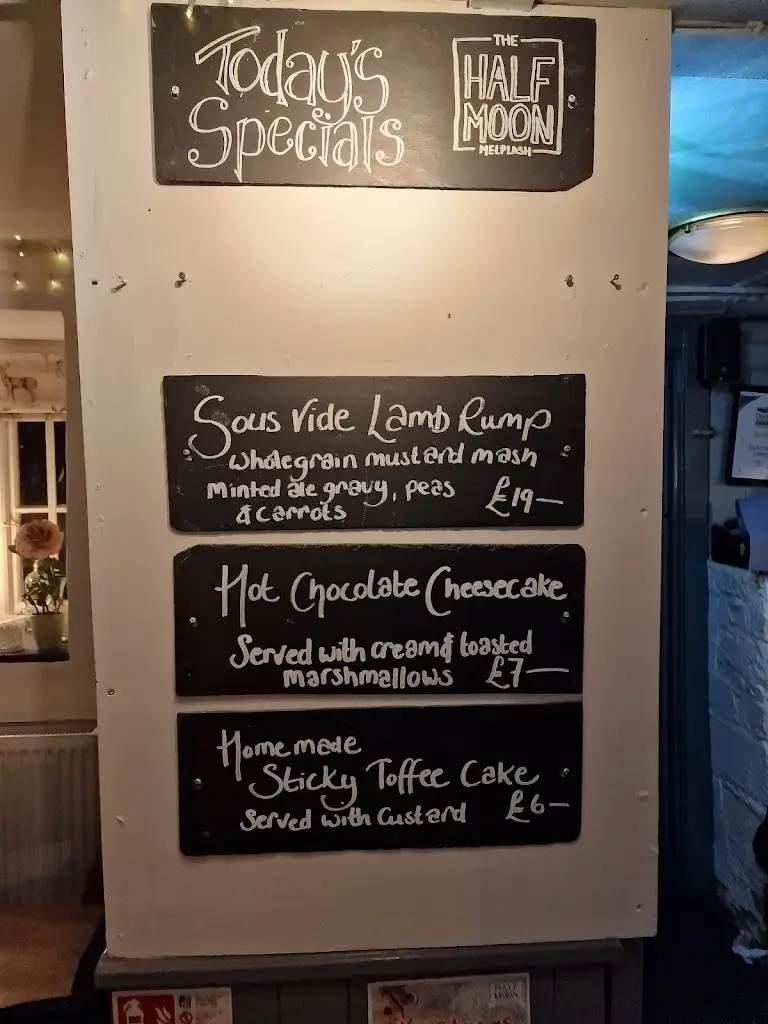 Today's
Specials
THE
HALF
MOON
MELPLASH
Sous Vide Lamb Rump
wholegrain mustard mash
Minted ale gravy, peas £19—
& carrots
Hot Chocolate Cheesecake
Served with cream & toasted
marshmallows £7—
Homemade
Sticky Toffee Cake
Served with Custard £6—
HALF
MOON